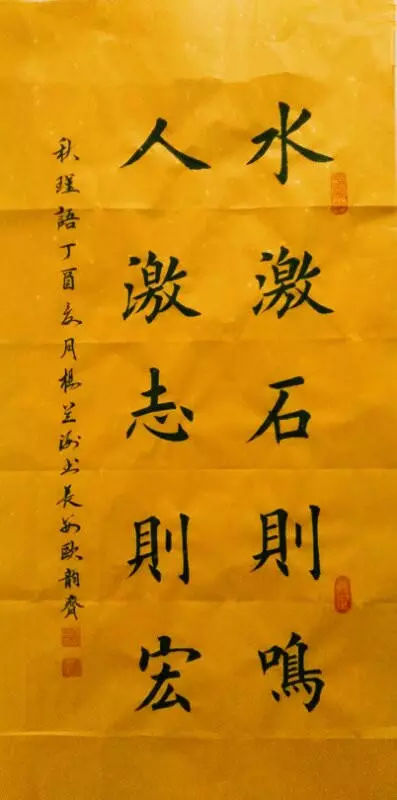 水激石則鳴
人激志則宏
秋瑾語丁酉亥月楊兰洲书長安歐韵齋